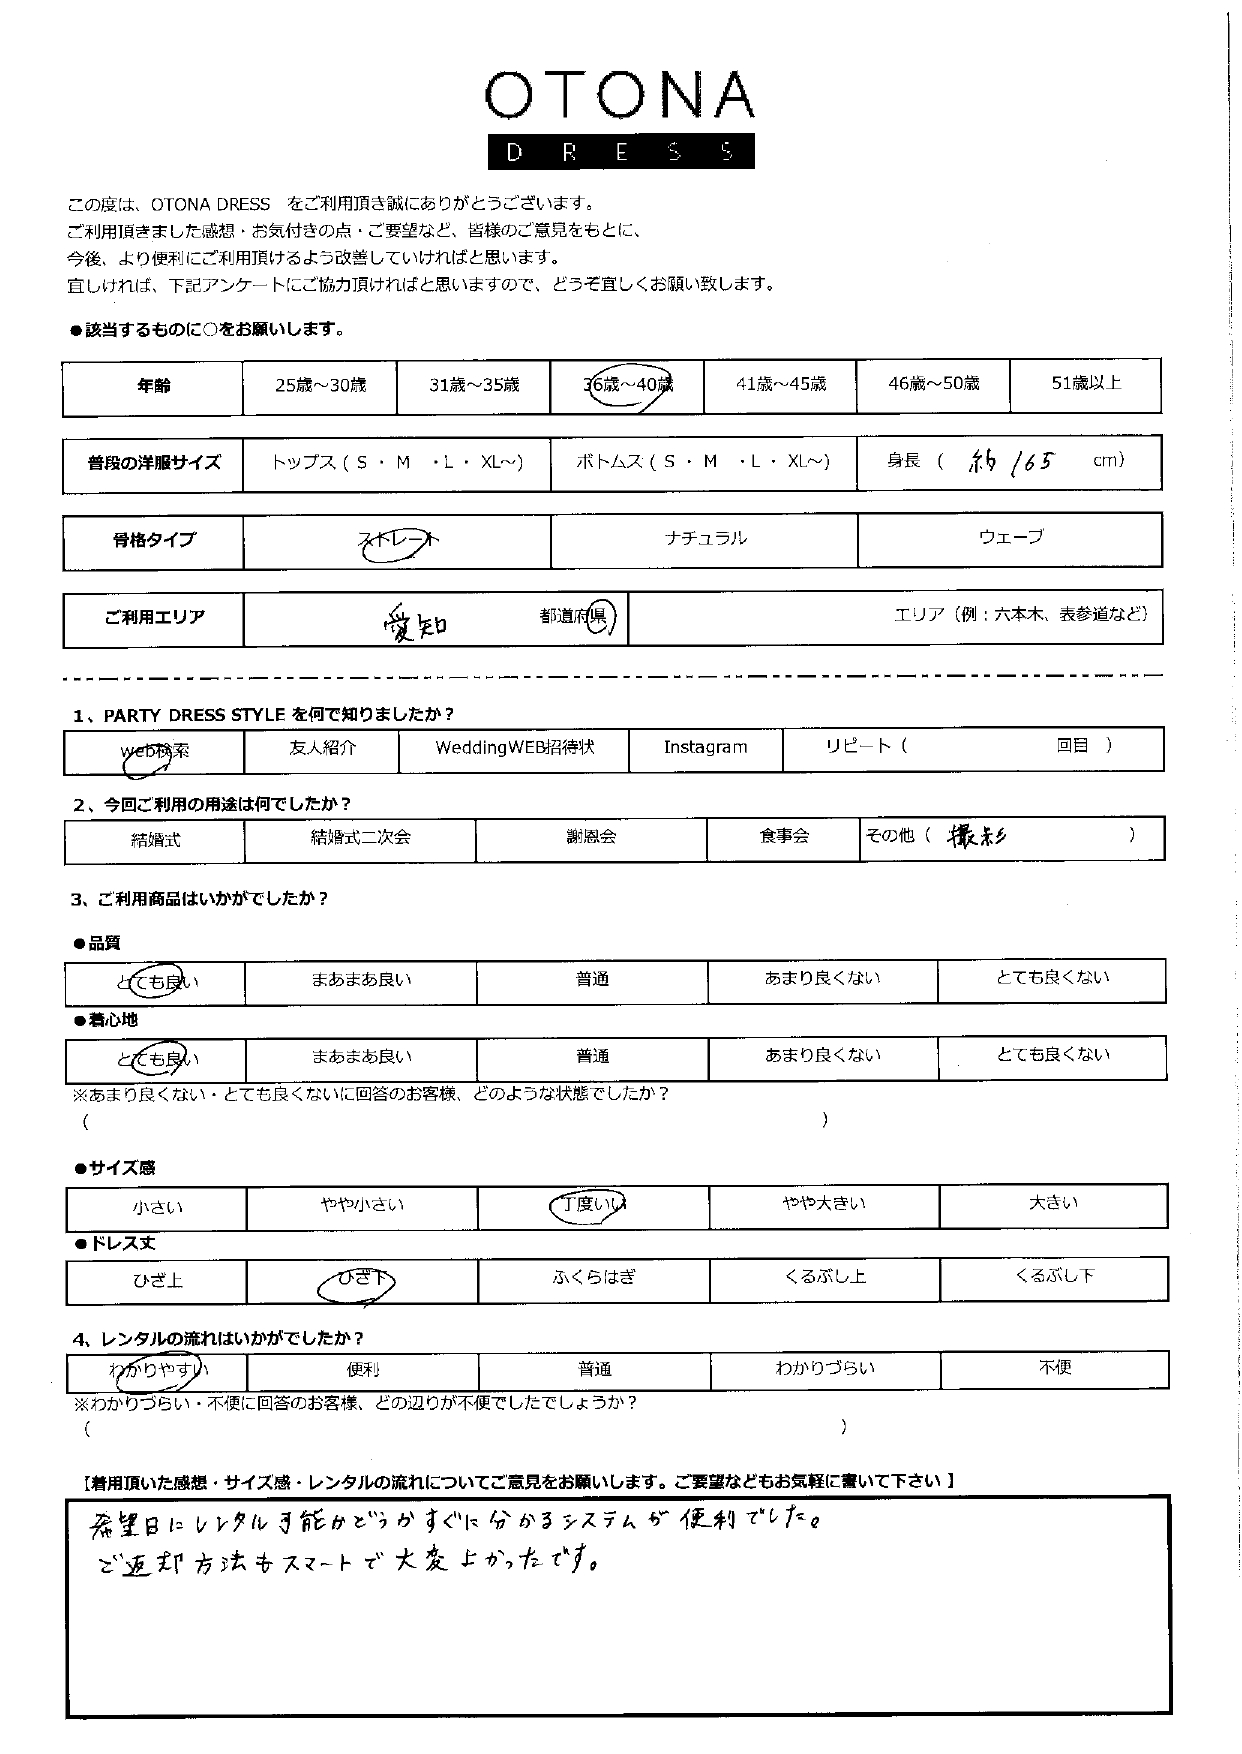 OTONA
DRESS
この度は、OTONA DRESS　をご利用頂き誠にありがとうございます。
ご利用頂きました感想・お気付きの点・ご要望など、皆様のご意見をもとに、
今後、より便利にご利用頂けるよう改善していければと思います。
宜しければ、下記アンケートにご協力頂ければと思いますので、どうぞ宜しくお願い致します。
●該当するものに○をお願いします。
年齢 25歳～30歳 31歳～35歳 36歳～40歳 41歳～45歳 46歳～50歳 51歳以上
普段の洋服サイズ トップス ( S ・ M ・L ・ XL～) ボトムス ( S ・ M ・L ・ XL～) 身長 ( 約165 cm)
骨格タイプ ストレート ナチュラル ウェーブ
ご利用エリア 愛知 都道府県 エリア（例：六本木、表参道など）
1、PARTY DRESS STYLE を何で知りましたか？
web検索 友人紹介 WeddingWEB招待状 Instagram リピート（ 回目 ）
2、今回ご利用の用途は何でしたか？
結婚式 結婚式二次会 謝恩会 食事会 その他（ 撮影 ）
3、ご利用商品はいかがでしたか？
●品質
とても良い まあまあ良い 普通 あまり良くない とても良くない
●着心地
とても良い まあまあ良い 普通 あまり良くない とても良くない
※あまり良くない・とても良くないに回答のお客様、どのような状態でしたか？
( )
●サイズ感
小さい やや小さい 丁度いい やや大きい 大きい
●ドレス丈
ひざ上 ひざ下 ふくらはぎ くるぶし上 くるぶし下
4、レンタルの流れはいかがでしたか？
わかりやすい 便利 普通 わかりづらい 不便
※わかりづらい・不便に回答のお客様、どの辺りが不便でしたでしょうか？
( )
【着用頂いた感想・サイズ感・レンタルの流れについてご意見をお願いします。ご要望などもお気軽に書いて下さい 】
希望日にレンタル可能かどうかすぐに分かるシステムが便利でした。
ご返却方法もスマートで大変よかったです。